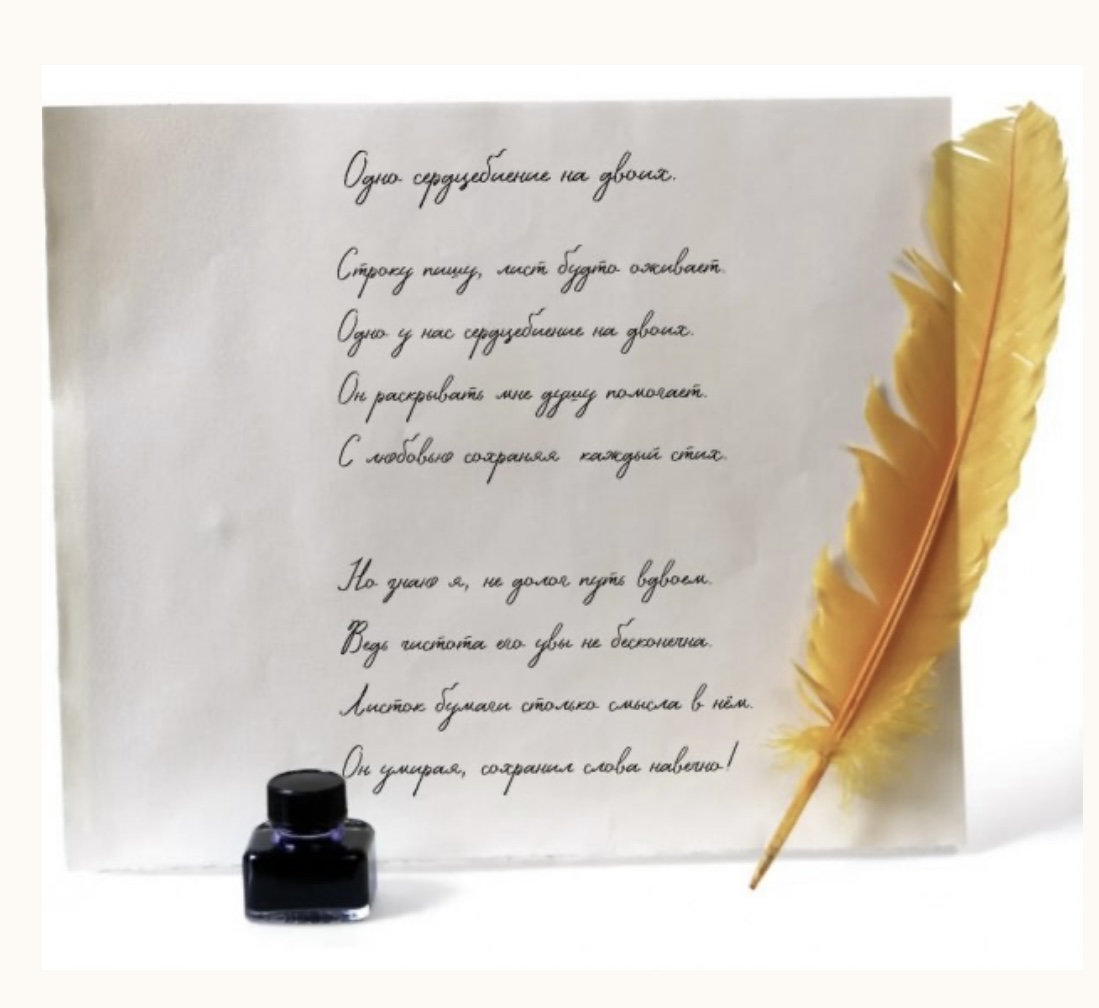 Одно сердцебиение на двоих.
Строку пишу, лист будто оживает.
Одно у нас сердцебиение на двоих.
Он раскрывать мне душу помогает.
С любовью сохраняя каждый стих.
Но знаю я, не долог путь вдвоем.
Ведь чистота его увы не бесконечна.
Листок бумаги столько смысла в нём.
Он умирая, сохранил слова навечно!